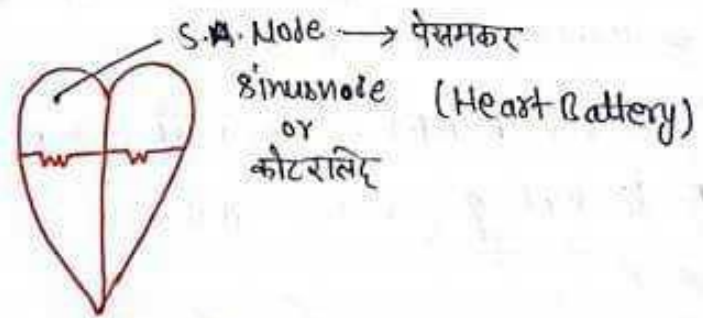 S.A. Node → पेसमकर
Sinusnode (Heart Battery)
or
कोटरालिंद